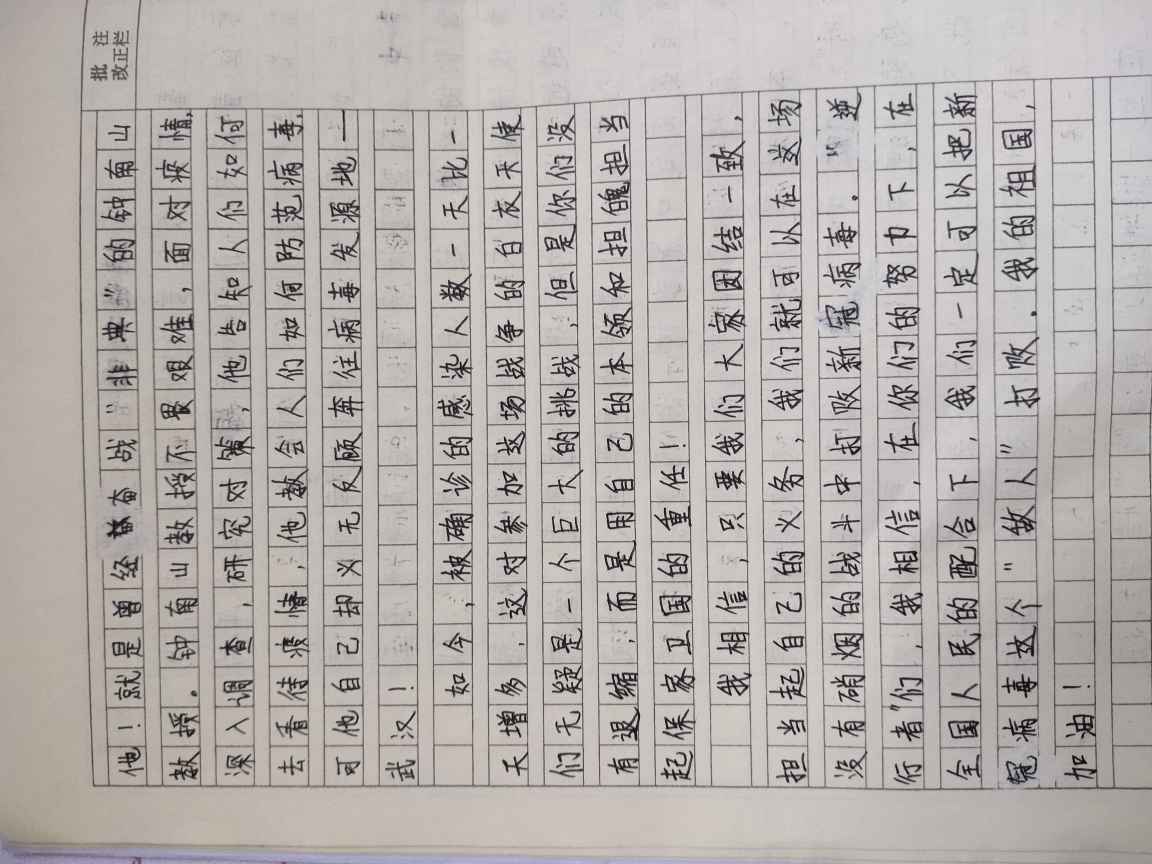 批注
改正栏
他！就是曾经奋战"非典"的钟南山
教授。钟南山教授不畏艰难，面对疫情，
深入调查，研究对策，他告知人们如何
去看待疫情，他教会人们如何防范病毒，
可他自己却义无反顾奔往病毒发源地—
武汉！
如今，被确诊的感染人数一天比一
天增多，这对参加这场战争的白衣天使
们无疑是一个巨大的挑战，但是你们没
有退缩，而是用自己的本领和担魄担当
起保家卫国的重任！
我相信，只要我们大家团结一致，
担当起自己的义务，我们就可以在这场
没有硝烟的战斗中打败新冠病毒。"逆
行者"们，我相信，在你们的努力下，在
全国人民的配合下，我们一定可以把新
冠病毒这个"敌人"打败。我的祖国，
加油！